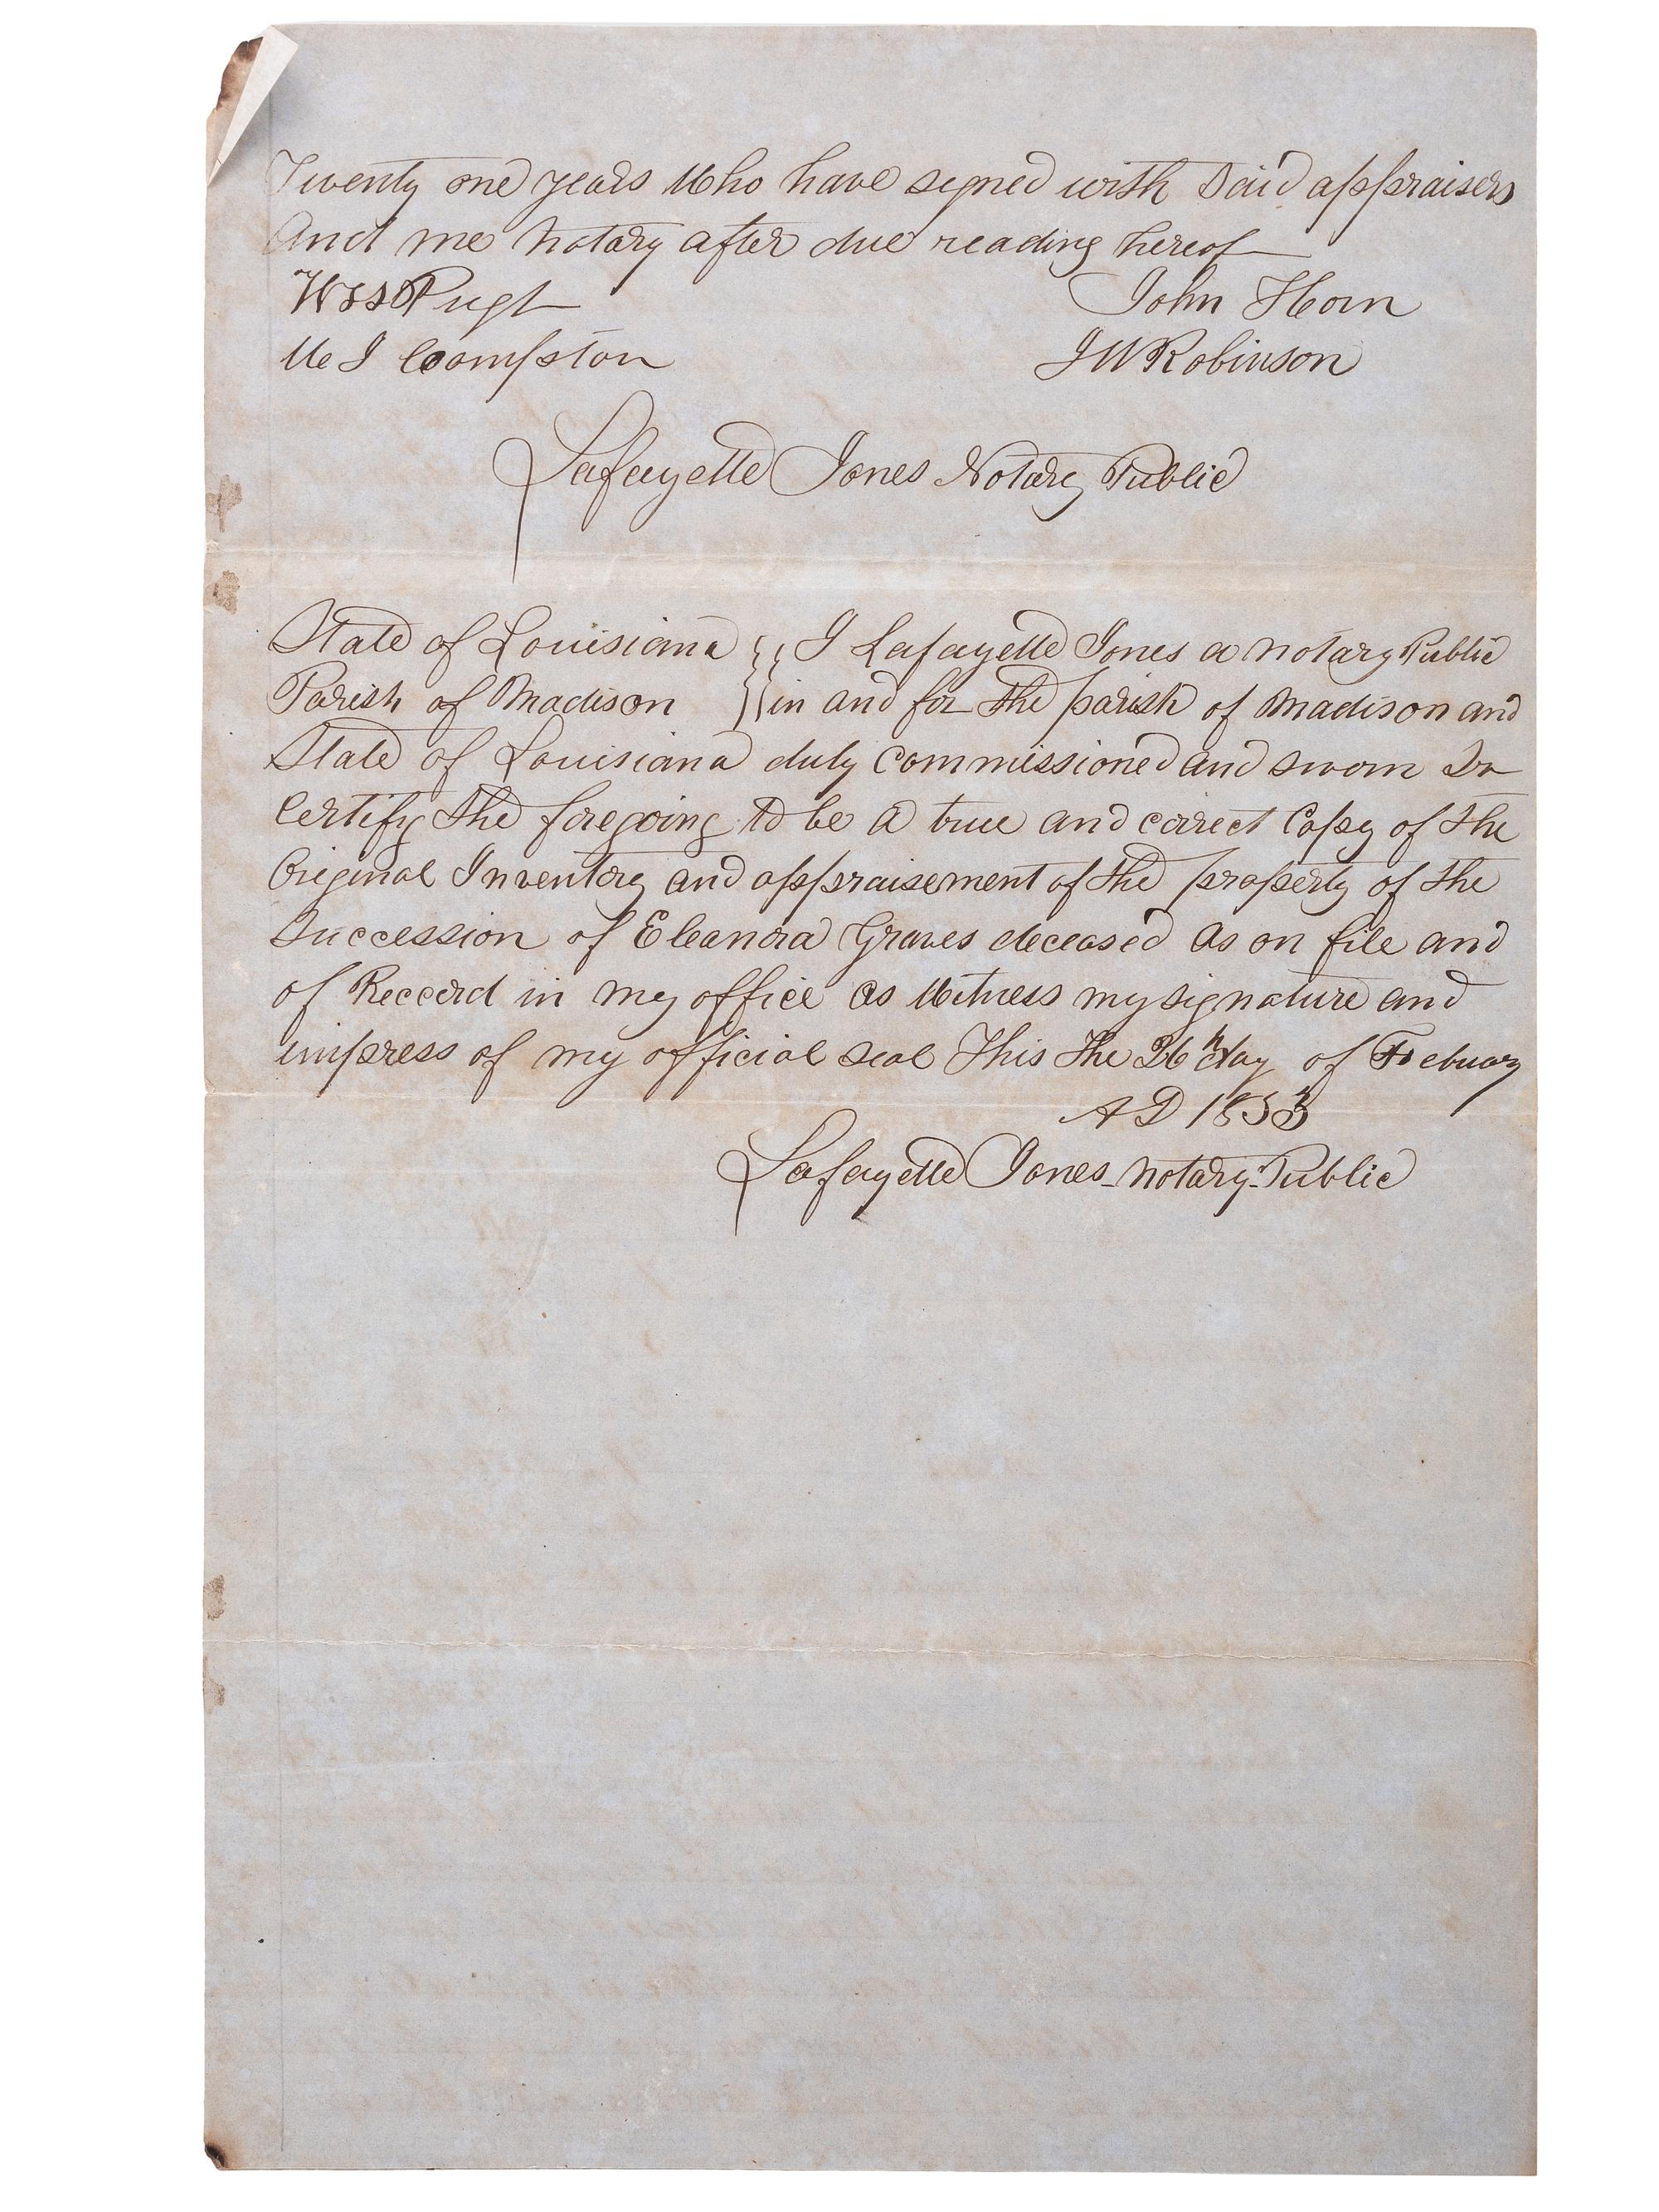 Twenty one years Who have signed with said appraisers
And me Notary after due reading hereof
Pugh John Horn
Compton J W Robinson
Lafayette Jones Notary Public
State of Louisiana }} I Lafayette Jones a Notary Public
Parish of Madison }} in and for the parish of Madison and
State of Louisiana duly commissioned and sworn Do
Certify the foregoing to be a true and correct Copy of the
Original Inventory and appraisement of the property of the
Succession of Eleanora Graves deceased as on file and
of Record in my office as Witness my signature and
impress of my official seal This the 26th day of Febuary
A D 1853
Lafayette Jones Notary Public